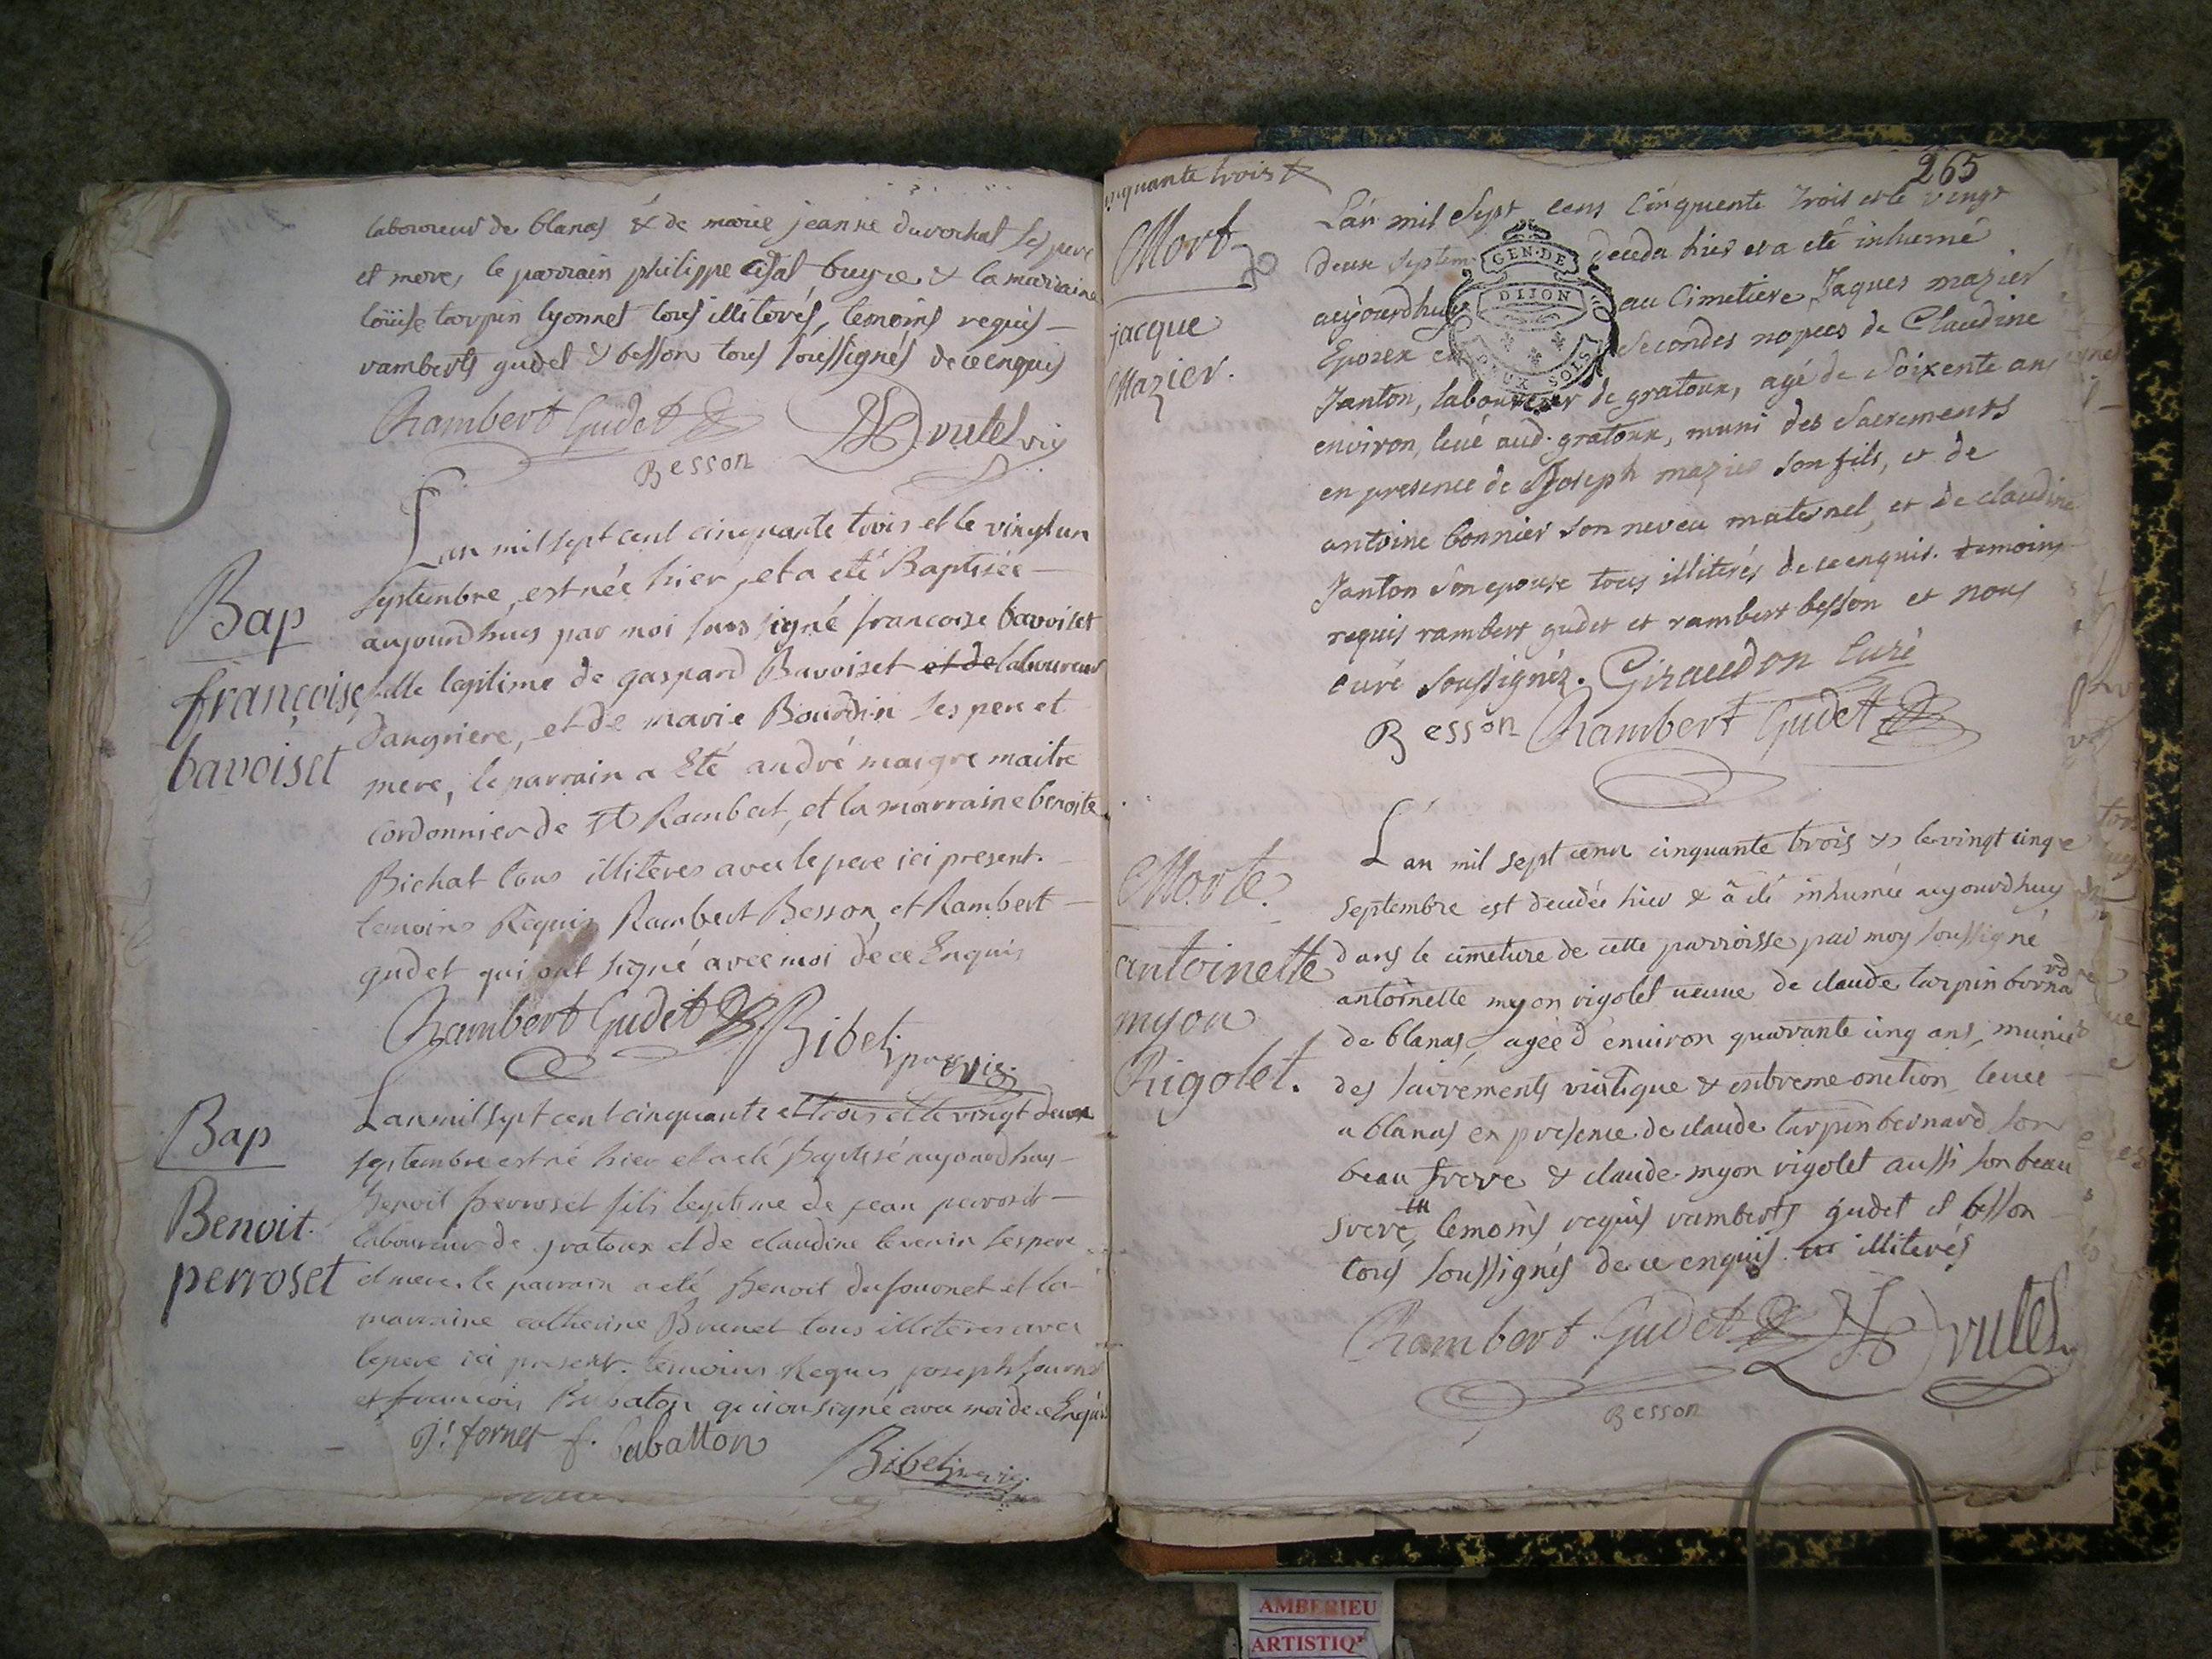 laboureur de blanas & de marie jeanne durochat ses pere
et mere, le parrain philippe buyre & la marraine
loüise tarpin lyonnet tous illiterés, temoins requis
ramberts gudet & besson tous soussignés de ce enquis
Rambert Gudet
Besson
Drutel vic
Bap
françoise
bavoiset
Lan mil sept cent cinquante trois et le vingt un
septembre, est née hier, et a eté Baptisée
aujourdhuy par moi sous signé francoise bavoiset
fille legitime de gaspard Bavoiset et de laboureur
dangriere, et de marie Bourdin ses pere et
mere, le parrain a Eté andré maigre maitre
Cordonnier de St Rambert, et la marraine benoite
Bichat tous illiteres avec le pere ici present.
temoins Requis Rambert Besson et Rambert
gudet qui ont signé avec moi de ce Enquis
Rambert Gudet
Ribet, pre vic.
Bap
Benoit
perroset
Lan mil sept cent cinquante et trois et le vingt deux
septembre est né hier et a eté Baptisé aujourdhuy
Benoit perroset fils legitime de jean perroset
laboureur de gratoux et de claudine tenein ses pere
et mere. le parrain a eté Benoit dufouonet et la
marraine catherine Brunet tous illiteres avec
le pere ici present. temoins Requis joseph fournet
et francois Babaton qui ont signé avec moi de ce Enquis
J. fornet f. babatton
Ribet, pre vic.
265
cinquante trois
Mort
jacque
Mazier.
L'an mil Sept cens Cinquente Trois et le vingt
deux Septem deceda hier et a eté inhumé
aujourdhuy au Cimetiere, Jaques mazier
Epoux en Secondes nopces de Claudine
Janton, laboureur de gratoux, agé de Soixente ans
environ, levé aud. gratoux, muni des Sacrements
en presence de Joseph mazier Son fils, et de
antoine bonnier Son neveu maternel, et de claudine
Janton Son epouse tous illiterés de ce enquis. temoins
requis rambert gudet et rambert besson et nous
curé Soussignés. Giraudon Curé
Besson Rambert Gudet
GEN. DE
DIJON
DEUX SOLS
Morte.
antoinette
myon
Rigolet.
L an mil sept cent cinquante trois & le vingt cinqe
septembre est decedée hier & a été inhumée aujourdhuy
dans le cimetiere de cette parroisse par moy soussigné
antoinette myon rigolet veuve de claude tarpin bornard
de blanas, agée d'environ quarante cinq ans, munie
des sacrements viatique & extreme onction levée
a blanas en presence de claude tarpin bernard son
beau frere & claude myon rigolet aussi son beau
frere, temoins requis ramberts gudet et besson
tous soussignés de ce enquis illiterés
Rambert Gudet
Drutel
Besson
AMBERIEU
ARTISTIQ